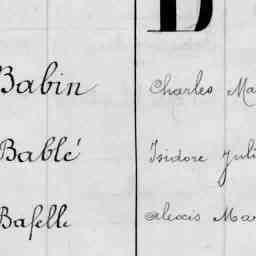 B
Babin Charles Ma
Bablé Isidore Juli
Bafelle Alexis Mar